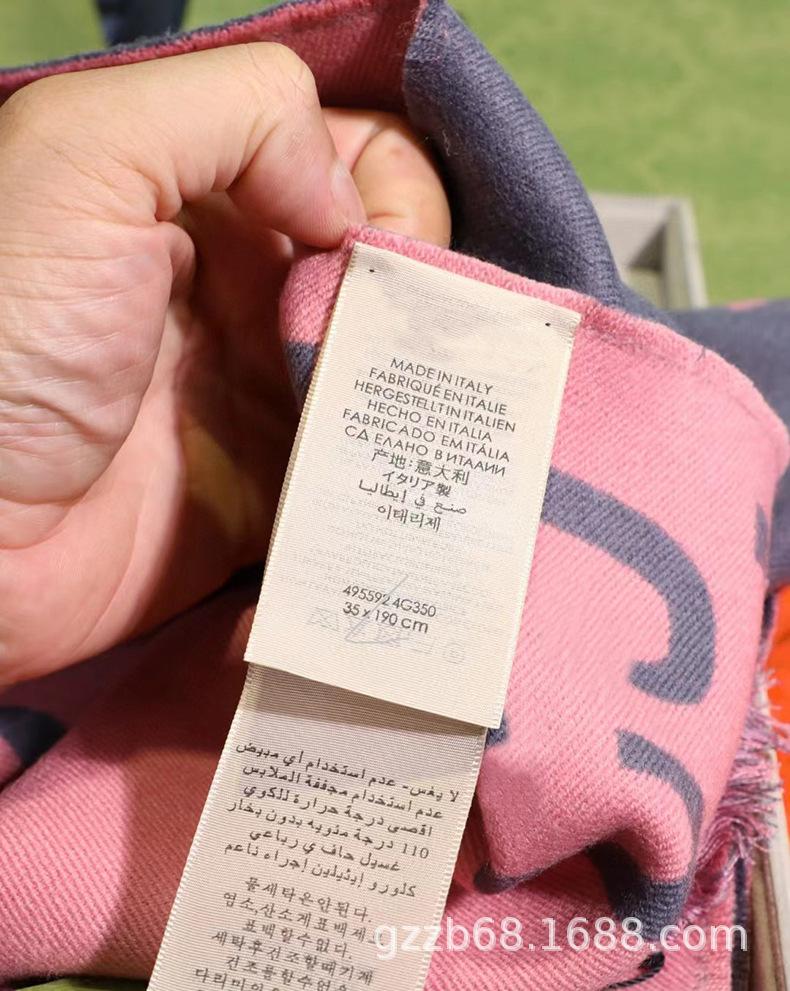 MADE IN ITALY
FABRIQUÉ EN ITALIE
HERGESTELLT IN ITALIEN
HECHO EN ITALIA
FABRICADO EM ITÁLIA
СΔЕЛАНО В ИТАЛИИ
产地:意大利
イタリア製
صنع في إيطاليا
이태리제
495592 4G350
35 x 190 cm
لا يغس- عدم استخدام أي مبيض
عدم استخدام مجففة الملابس
اقصى درجة حرارة للكوي
110 درجة منويه بدون بخار
غسيل جاف ي رباعي
كلورو إيثيلين إجراء ناعم
물세탁은안된다.
염소,산소계표백제
표백할수없다.
세탁후건조할때기계
건조를할수없음
다리미의온
gzzb68.1688.com